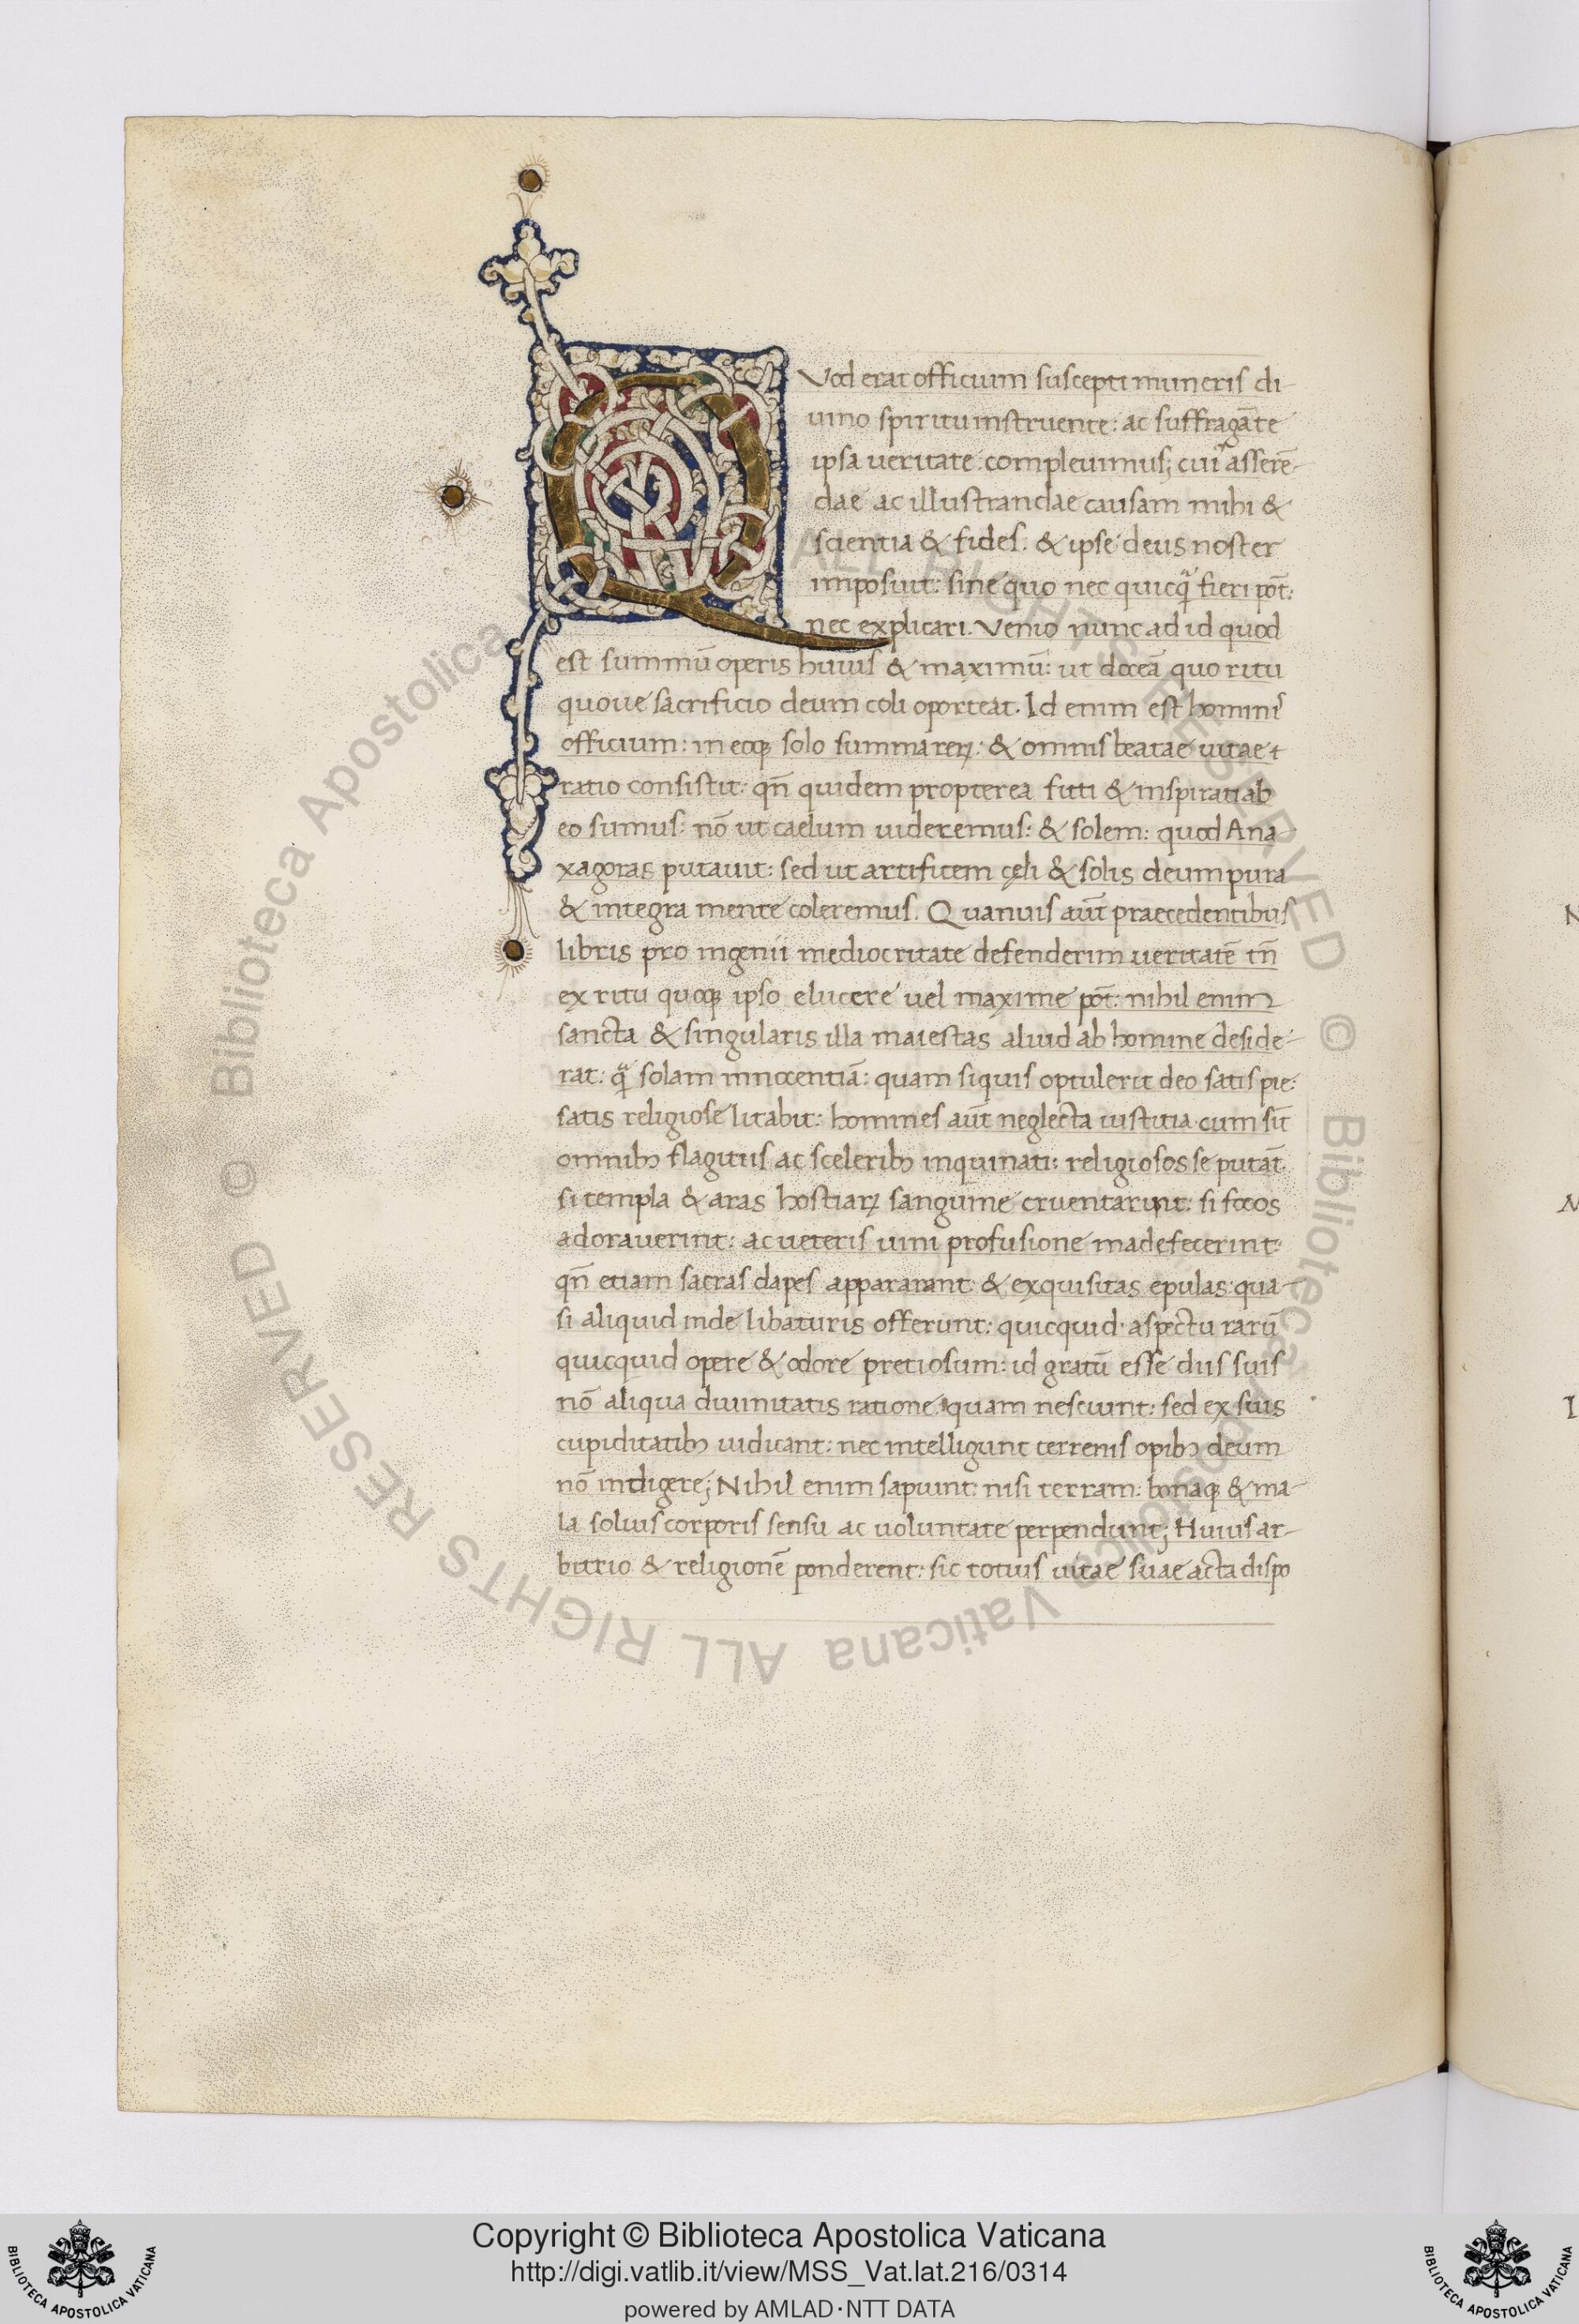 QVod erat officium suscepti muneris di-
uino spiritu instruente: ac suffragāte
ipsa ueritate compleuimus; cui' asserē-
dae ac illustrandae causam mihi &
scientia & fides. & ipse deus noster
imposuit: sine quo nec quicq̃ fieri pōt:
nec explicari. Venio nunc ad id quod
est summū operis huius & maximū: ut doceā quo ritu
quoue sacrificio deum coli oporteat. Id enim est homini'
officium: in eoq; solo summa reꝝ: & omnis beatae uitae
ratio consistit: qn̄ quidem propterea ficti & inspirati ab
eo sumus: nō ut caelum uideremus: & solem: quod Ana-
xagoras putauit: sed ut artificem cęli & solis deum pura
& integra mente coleremus. Quanuis aūt praecedentibus
libris pro ingenii mediocritate defenderim ueritatē tn̄
ex ritu quoq; ipso elucere uel maxime pōt: nihil enim
sancta & singularis illa maiestas aliud ab homine deside-
rat: q̃ solam innocentiā: quam siquis optulerit deo satis pie:
satis religiose litabit: homines aūt neglecta iustitia cum sīt
omnibꝰ flagitiis ac sceleribꝰ inquinati: religiosos se putāt
si templa & aras hostiaꝝ sanguine cruentarint: si focos
adorauerint: ac ueteris uini profusione madefecerint
qn̄ etiam sacras dapes appararant & exquisitas epulas qua-
si aliquid inde libaturis offerunt: quicquid aspectu rarū
quicquid opere & odore pretiosum: id gratū esse diis suis
nō aliqua diuinitatis ratione quam nesciunt: sed ex suis
cupiditatibꝰ iudicant: nec intelligunt terrenis opibꝰ deum
nō indigere; Nihil enim sapiunt nisi terram: bonaq; & ma-
la solius corporis sensu ac uoluntate perpendunt; Huius ar-
bitrio & religionē ponderent: sic totius uitae suae acta dispo
© Biblioteca Apostolica Vaticana ALL RIGHTS RESERVED
Copyright © Biblioteca Apostolica Vaticana
http://digi.vatlib.it/view/MSS_Vat.lat.216/0314
powered by AMLAD·NTT DATA
BIBLIOTECA APOSTOLICA VATICANA
BIBLIOTECA APOSTOLICA VATICANA